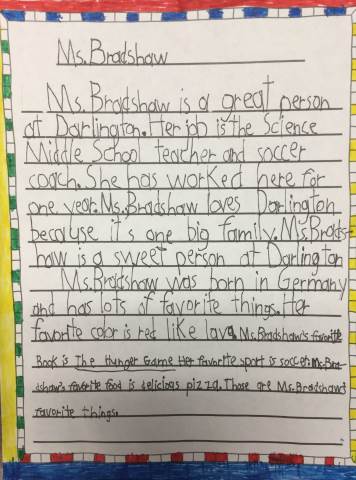 Ms.Bradshaw
Ms.Bradshaw is a great person
at Darlington. Her job is the Science
Middle School teacher and soccer
coach. She has worked here for
one year. Ms.Bradshaw loves Darlington
because it's one big family. Ms.Brads-
haw is a sweet person at Darlington
Ms.Bradshaw was born in Germany
and has lots of favorite things. Her
favorite color is red like lava. Ms.Bradshaw's favorite
Book is The Hunger Game Her favorite sport is soccer. Ms.Bra-
dshaw's favorite food is delicious pizza. Those are Ms.Bradshaw's
favorite things.